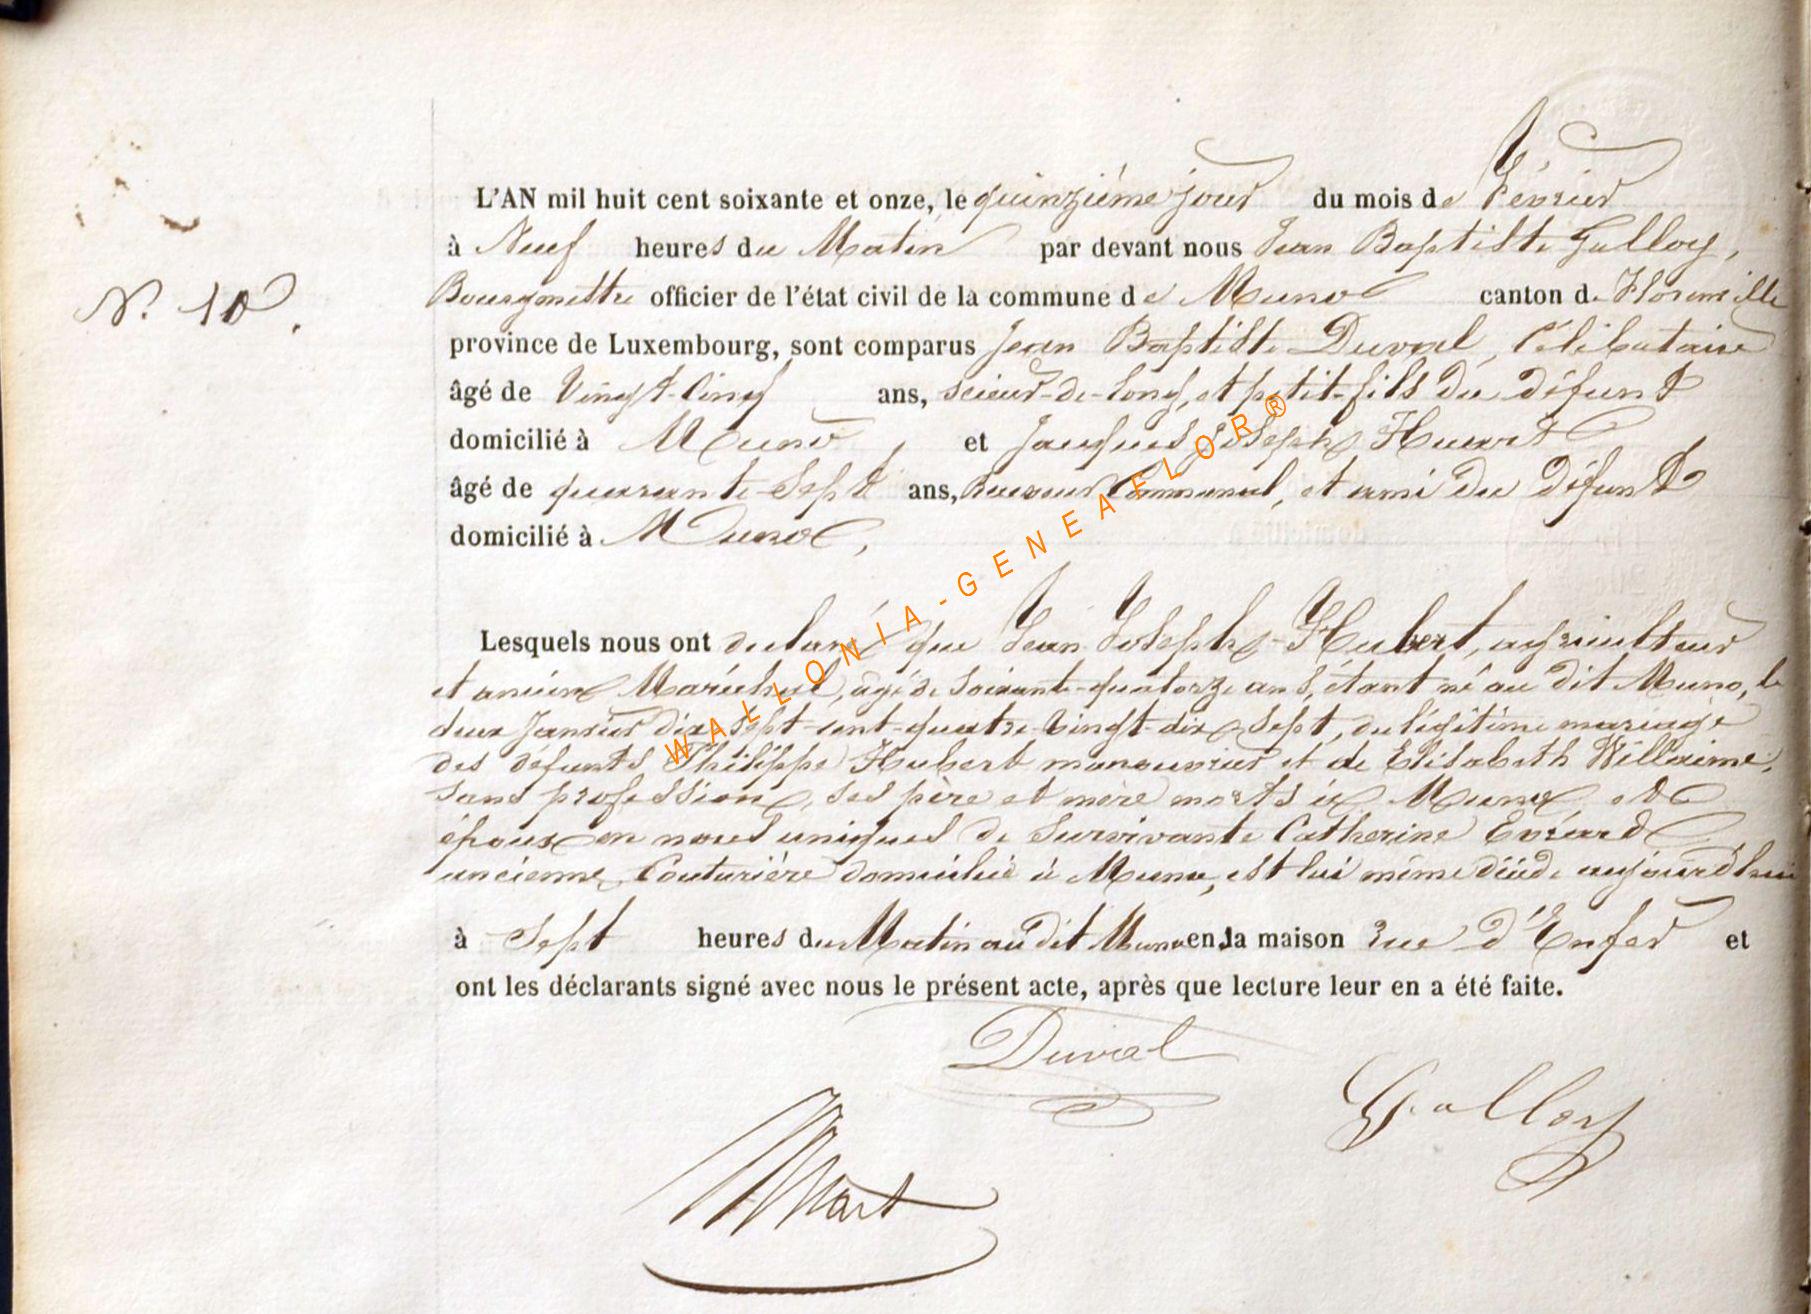 L'AN mil huit cent soixante et onze, le quinzième jour du mois de Février
à Neuf heures du Matin par devant nous Jean Baptiste Gulloy,
N.° 10. Bourgmestre officier de l'état civil de la commune de Muno canton d. Florenville
province de Luxembourg, sont comparus Jean Baptiste Duval, Célibataire
âgé de Vingt-Cinq ans, scieur-de-long, et petit-fils du défunt
domicilié à Muno, et Jacques Joseph Huart
âgé de quarante-Sept ans, Receveur Communal, et ami du défunt
domicilié à Muno,
Lesquels nous ont declaré que Jean Joseph Hubert, agriculteur
et ancien Maréchal, âgé de soixante-quatorze ans, étant né au dit Muno, le
deux Janvier dix-sept-cent-quatre-vingt-dix-sept, du légitime mariage
des défunts Philippe Hubert manouvrier et de Elisabeth Willaime,
sans profession, ses père et mère morts à Muno et
époux en noces uniques de survivante Catherine Evrard
ancienne Couturière domiciliée à Muno, est lui même décédé aujourd'hui
à Sept heures du Matin au dit Muno en la maison rue d'Enfer et
ont les déclarants signé avec nous le présent acte, après que lecture leur en a été faite.
Duval
Gulloy
Huart
WALLONIA-GENEAFLOR®